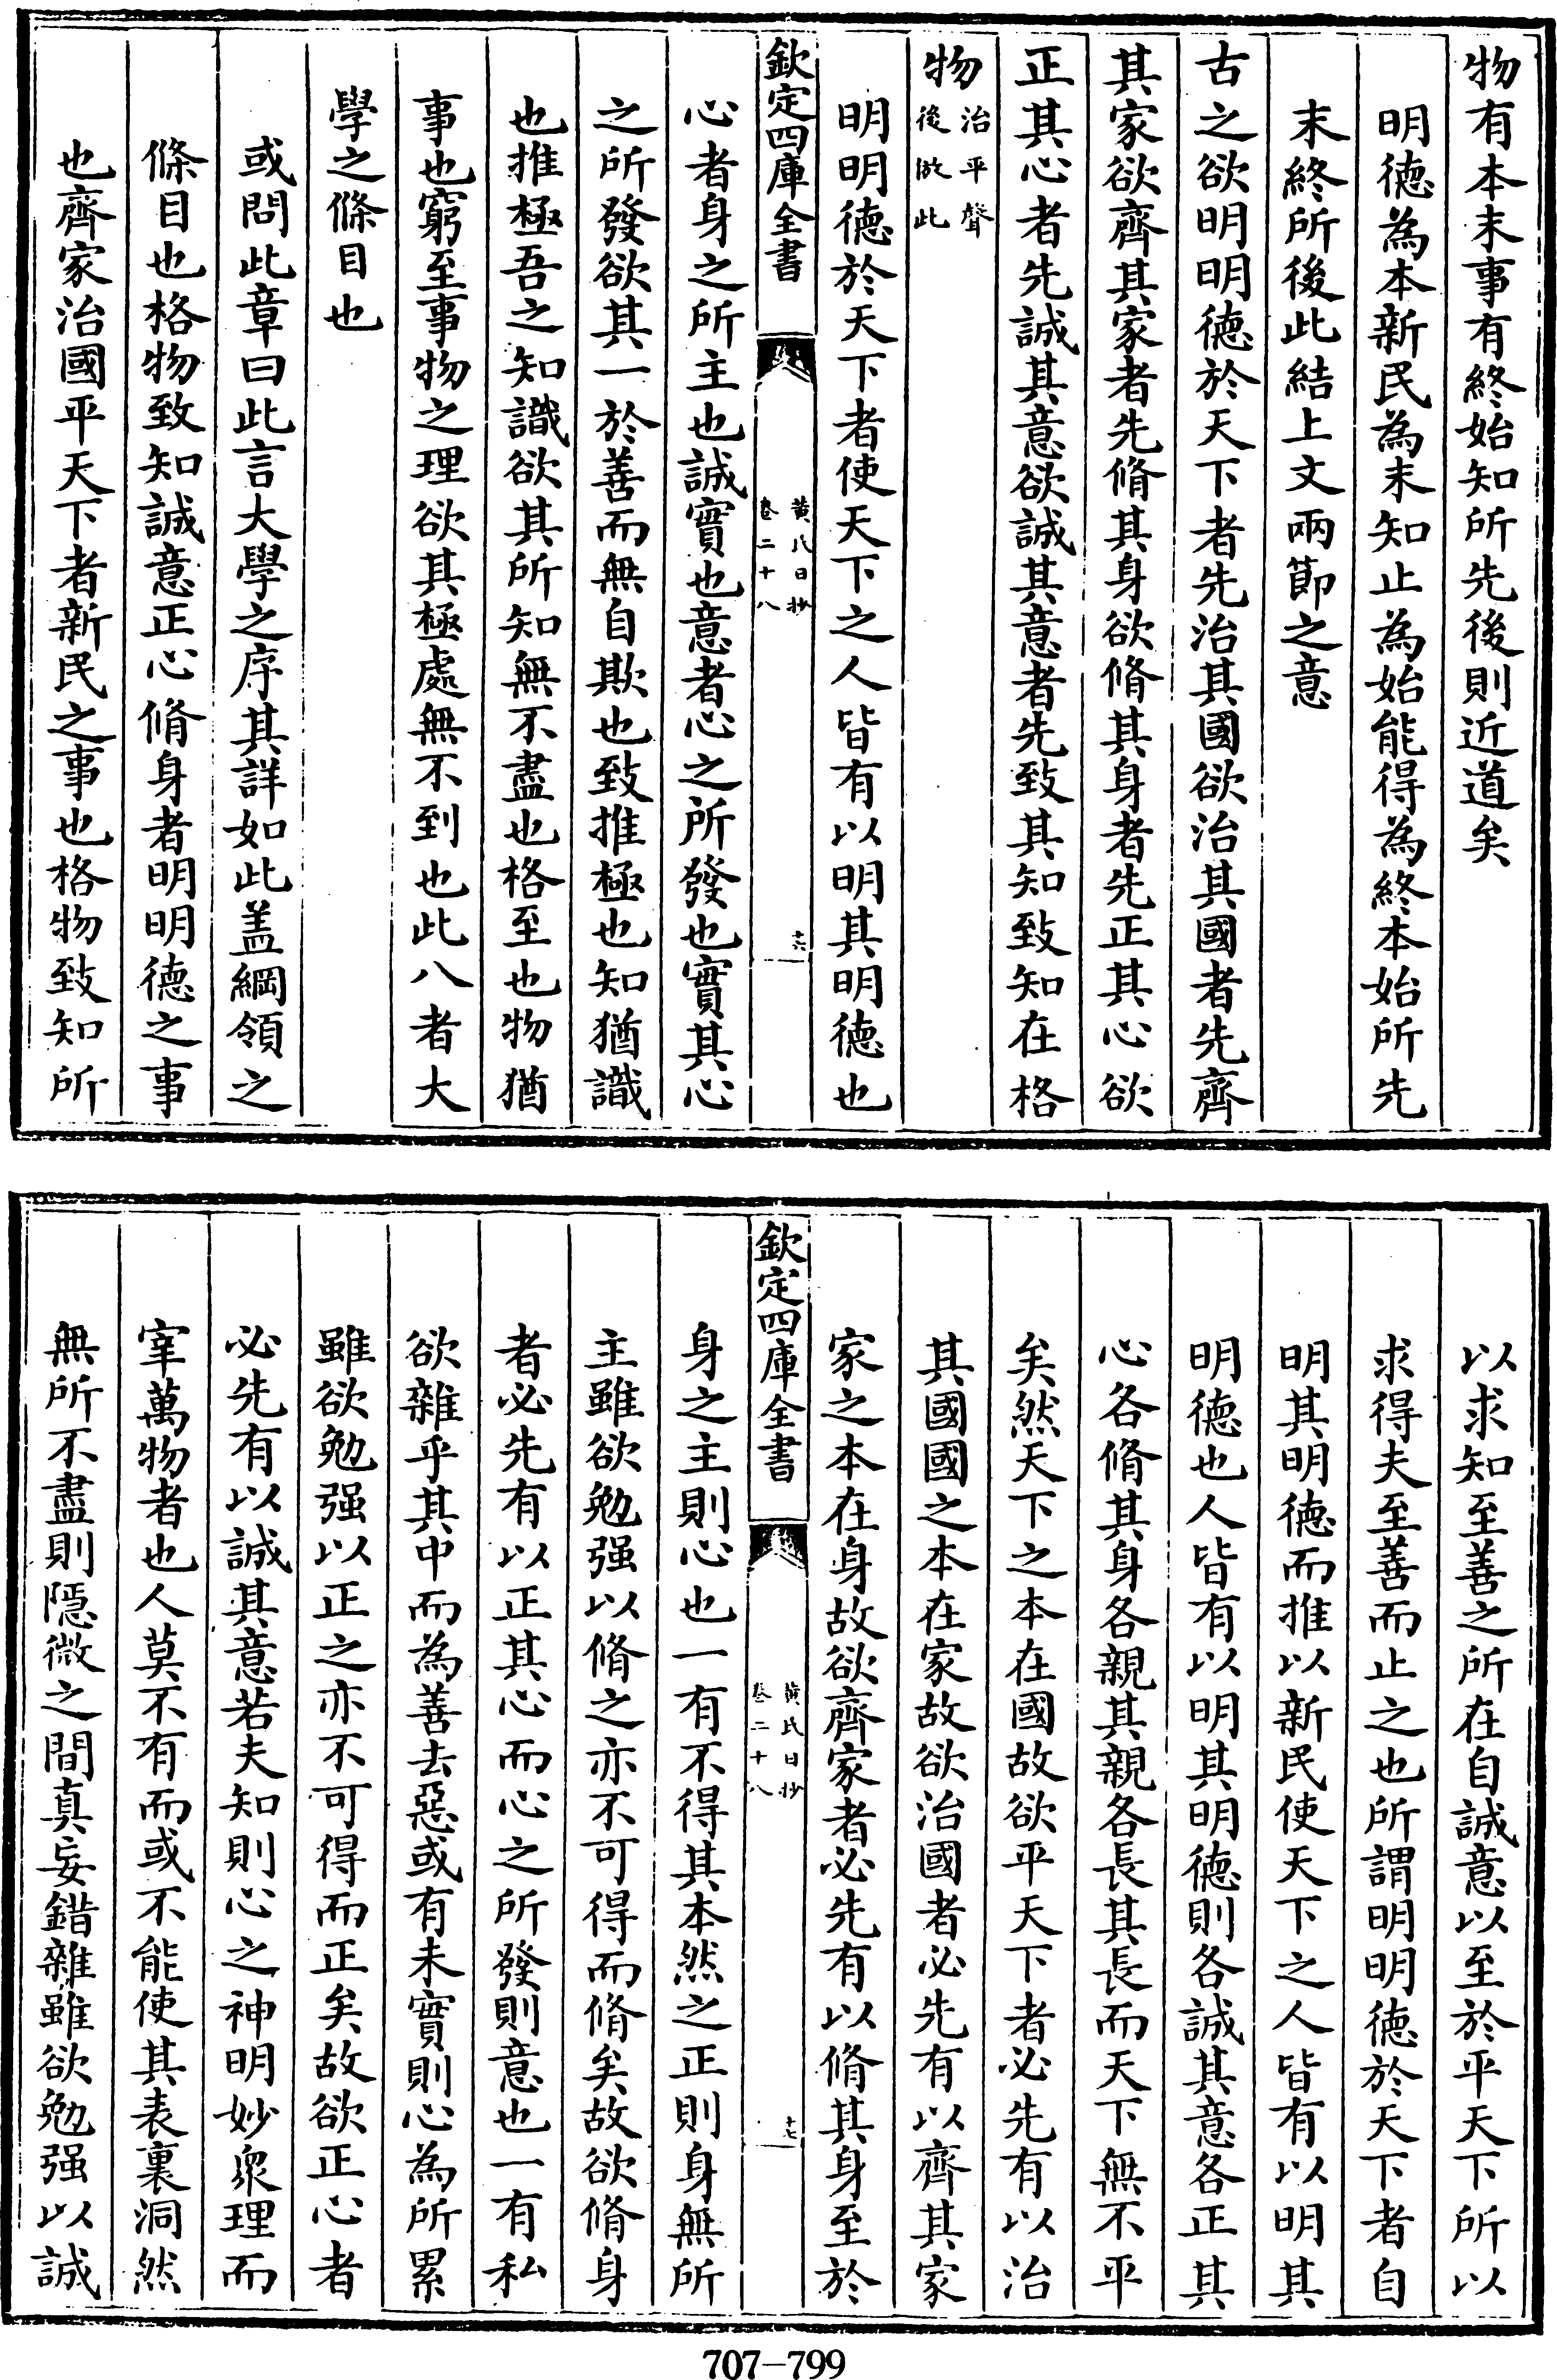 物有本末事有終始知所先後則近道矣
明德為本新民為末知止為始能得為終本始所先
末終所後此結上文兩節之意
古之欲明明德於天下者先治其國欲治其國者先齊
其家欲齊其家者先脩其身欲脩其身者先正其心欲
正其心者先誠其意欲誠其意者先致其知致知在格
物治平聲後倣此
明明德於天下者使天下之人皆有以明其明德也
欽定四庫全書
黃氏日抄
卷二十八
十六
心者身之所主也誠實也意者心之所發也實其心
之所發欲其一於善而無自欺也致推極也知猶識
也推極吾之知識欲其所知無不盡也格至也物猶
事也窮至事物之理欲其極處無不到也此八者大
學之條目也
或問此章曰此言大學之序其詳如此盖綱領之
條目也格物致知誠意正心脩身者明明德之事
也齊家治國平天下者新民之事也格物致知所
以求知至善之所在自誠意以至於平天下所以
求得夫至善而止之也所謂明明德於天下者自
明其明德而推以新民使天下之人皆有以明其
明德也人皆有以明其明德則各誠其意各正其
心各脩其身各親其親各長其長而天下無不平
矣然天下之本在國故欲平天下者必先有以治
其國國之本在家故欲治國者必先有以齊其家
家之本在身故欲齊家者必先有以脩其身至於
欽定四庫全書
黃氏日抄
卷二十八
十七
身之主則心也一有不得其本然之正則身無所
主雖欲勉强以脩之亦不可得而脩矣故欲脩身
者必先有以正其心而心之所發則意也一有私
欲雜乎其中而為善去惡或有未實則心為所累
雖欲勉强以正之亦不可得而正矣故欲正心者
必先有以誠其意若夫知則心之神明妙衆理而
宰萬物者也人莫不有而或不能使其表裏洞然
無所不盡則隱微之間真妄錯雜雖欲勉强以誠
707-799